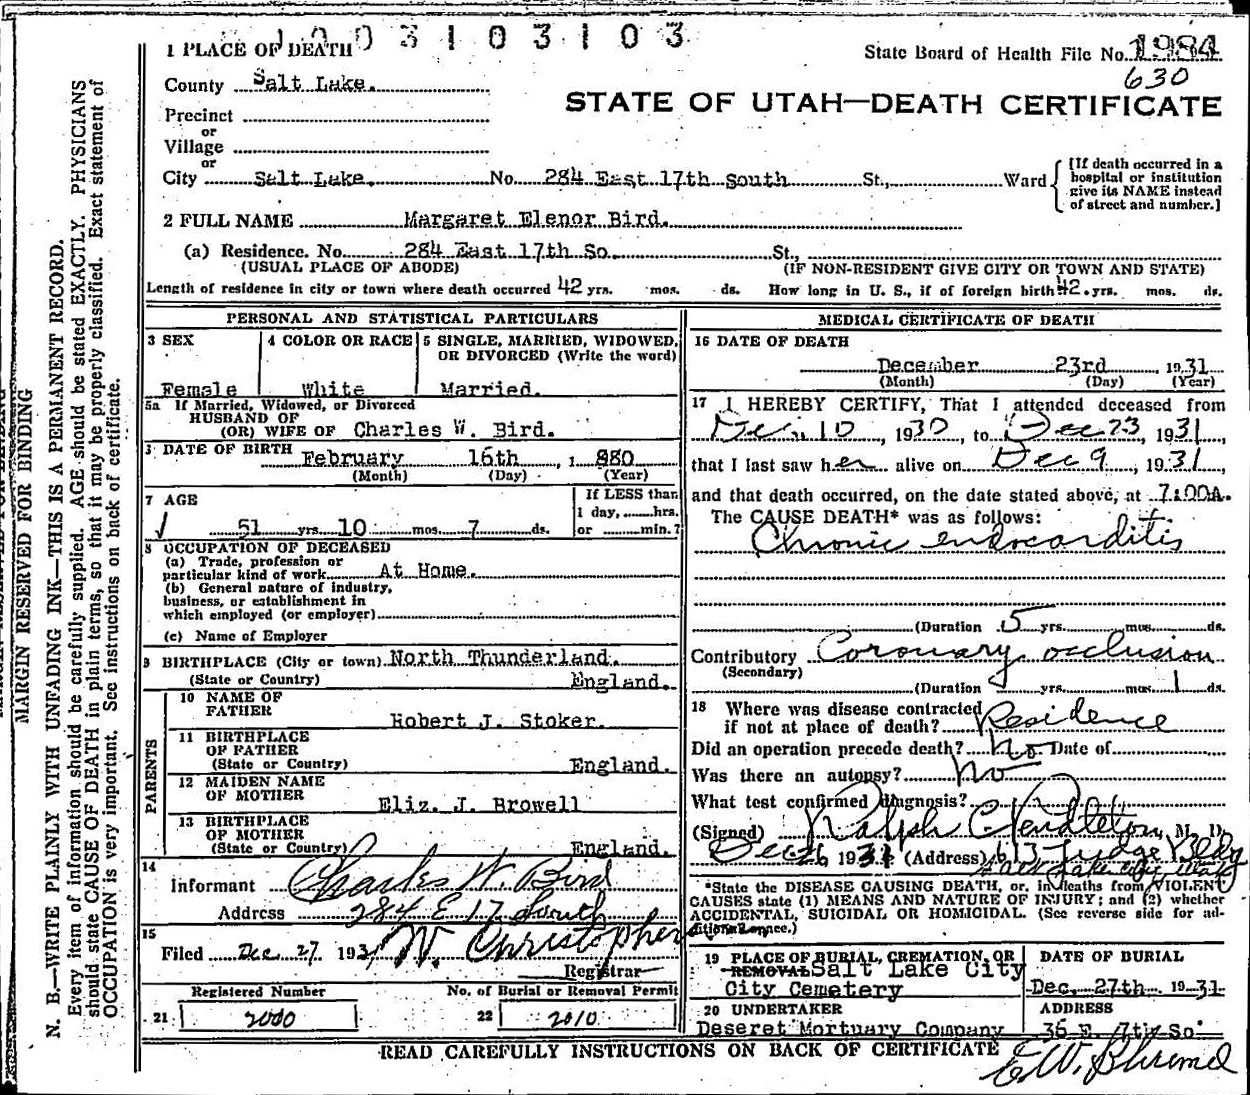 1003103103
1 PLACE OF DEATH
State Board of Health File No. 1984
630
County Salt Lake.
STATE OF UTAH—DEATH CERTIFICATE
Precinct
or
Village
or
City Salt Lake. No. 284 East 17th South St., Ward
[If death occurred in a hospital or institution give its NAME instead of street and number.]
2 FULL NAME Margaret Elenor Bird.
(a) Residence. No. 284 East 17th So. St.,
(USUAL PLACE OF ABODE) (IF NON-RESIDENT GIVE CITY OR TOWN AND STATE)
Length of residence in city or town where death occurred 42 yrs. mos. ds. How long in U. S., if of foreign birth 42. yrs. mos. ds.
PERSONAL AND STATISTICAL PARTICULARS
3 SEX 4 COLOR OR RACE 5 SINGLE, MARRIED, WIDOWED,
OR DIVORCED (Write the word)
Female White Married.
5a If Married, Widowed, or Divorced
HUSBAND OF
(OR) WIFE OF Charles W. Bird.
DATE OF BIRTH February 16th, 1880
(Month) (Day) (Year)
7 AGE If LESS than
1 day, hrs.
51 yrs. 10 mos. 7 ds. or min.?
8 OCCUPATION OF DECEASED
(a) Trade, profession or
particular kind of work At Home.
(b) General nature of industry,
business, or establishment in
which employed (or employer)
(c) Name of Employer
9 BIRTHPLACE (City or town) North Thunderland.
(State or Country) England.
PARENTS
10 NAME OF
FATHER Robert J. Stoker.
11 BIRTHPLACE
OF FATHER
(State or Country) England.
12 MAIDEN NAME
OF MOTHER Eliz. J. Browell
13 BIRTHPLACE
OF MOTHER
(State or Country) England.
14
Informant Charles W. Bird
Address 284 E 17 South
15
Filed Dec 27 1931 W. Christophers
Registrar
Registered Number No. of Burial or Removal Permit
21 2000 22 2010
MEDICAL CERTIFICATE OF DEATH
16 DATE OF DEATH
December 23rd 1931
(Month) (Day) (Year)
17 I HEREBY CERTIFY, That I attended deceased from
Dec. 10, 1930, to Dec 23, 1931,
that I last saw her alive on Dec 9, 1931,
and that death occurred, on the date stated above, at 7:00A.
The CAUSE DEATH* was as follows:
Chronic endocarditis
(Duration 5 yrs. mos. ds.
Contributory Coronary occlusion
(Secondary)
(Duration yrs. mos. 1 ds.
18 Where was disease contracted
if not at place of death? Residence
Did an operation precede death? No Date of
Was there an autopsy? No
What test confirmed diagnosis?
(Signed) Ralph C. Pendleton, M. D.
Dec 26 1931 (Address) 613 Judge Bldg
Salt Lake City Utah
*State the DISEASE CAUSING DEATH, or, in deaths from VIOLENT
CAUSES state (1) MEANS AND NATURE OF INJURY; and (2) whether
ACCIDENTAL, SUICIDAL OR HOMICIDAL. (See reverse side for ad-
ditional space.)
19 PLACE OF BURIAL, CREMATION, OR DATE OF BURIAL
REMOVAL Salt Lake City
City Cemetery Dec. 27th 1931
20 UNDERTAKER ADDRESS
Deseret Mortuary Company 36 E. 7th So
READ CAREFULLY INSTRUCTIONS ON BACK OF CERTIFICATE
MARGIN RESERVED FOR BINDING
N. B.—WRITE PLAINLY WITH UNFADING INK—THIS IS A PERMANENT RECORD.
Every item of information should be carefully supplied. AGE should be stated EXACTLY. PHYSICIANS
should state CAUSE OF DEATH in plain terms, so that it may be properly classified. Exact statement of
OCCUPATION is very important. See instructions on back of certificate.